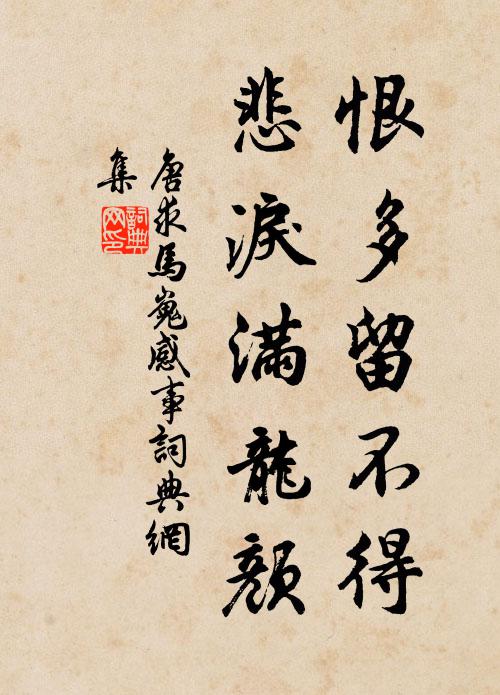 恨多留不得
悲淚滿龍顏
唐求馬嵬感事詞典網
集
詞典網印